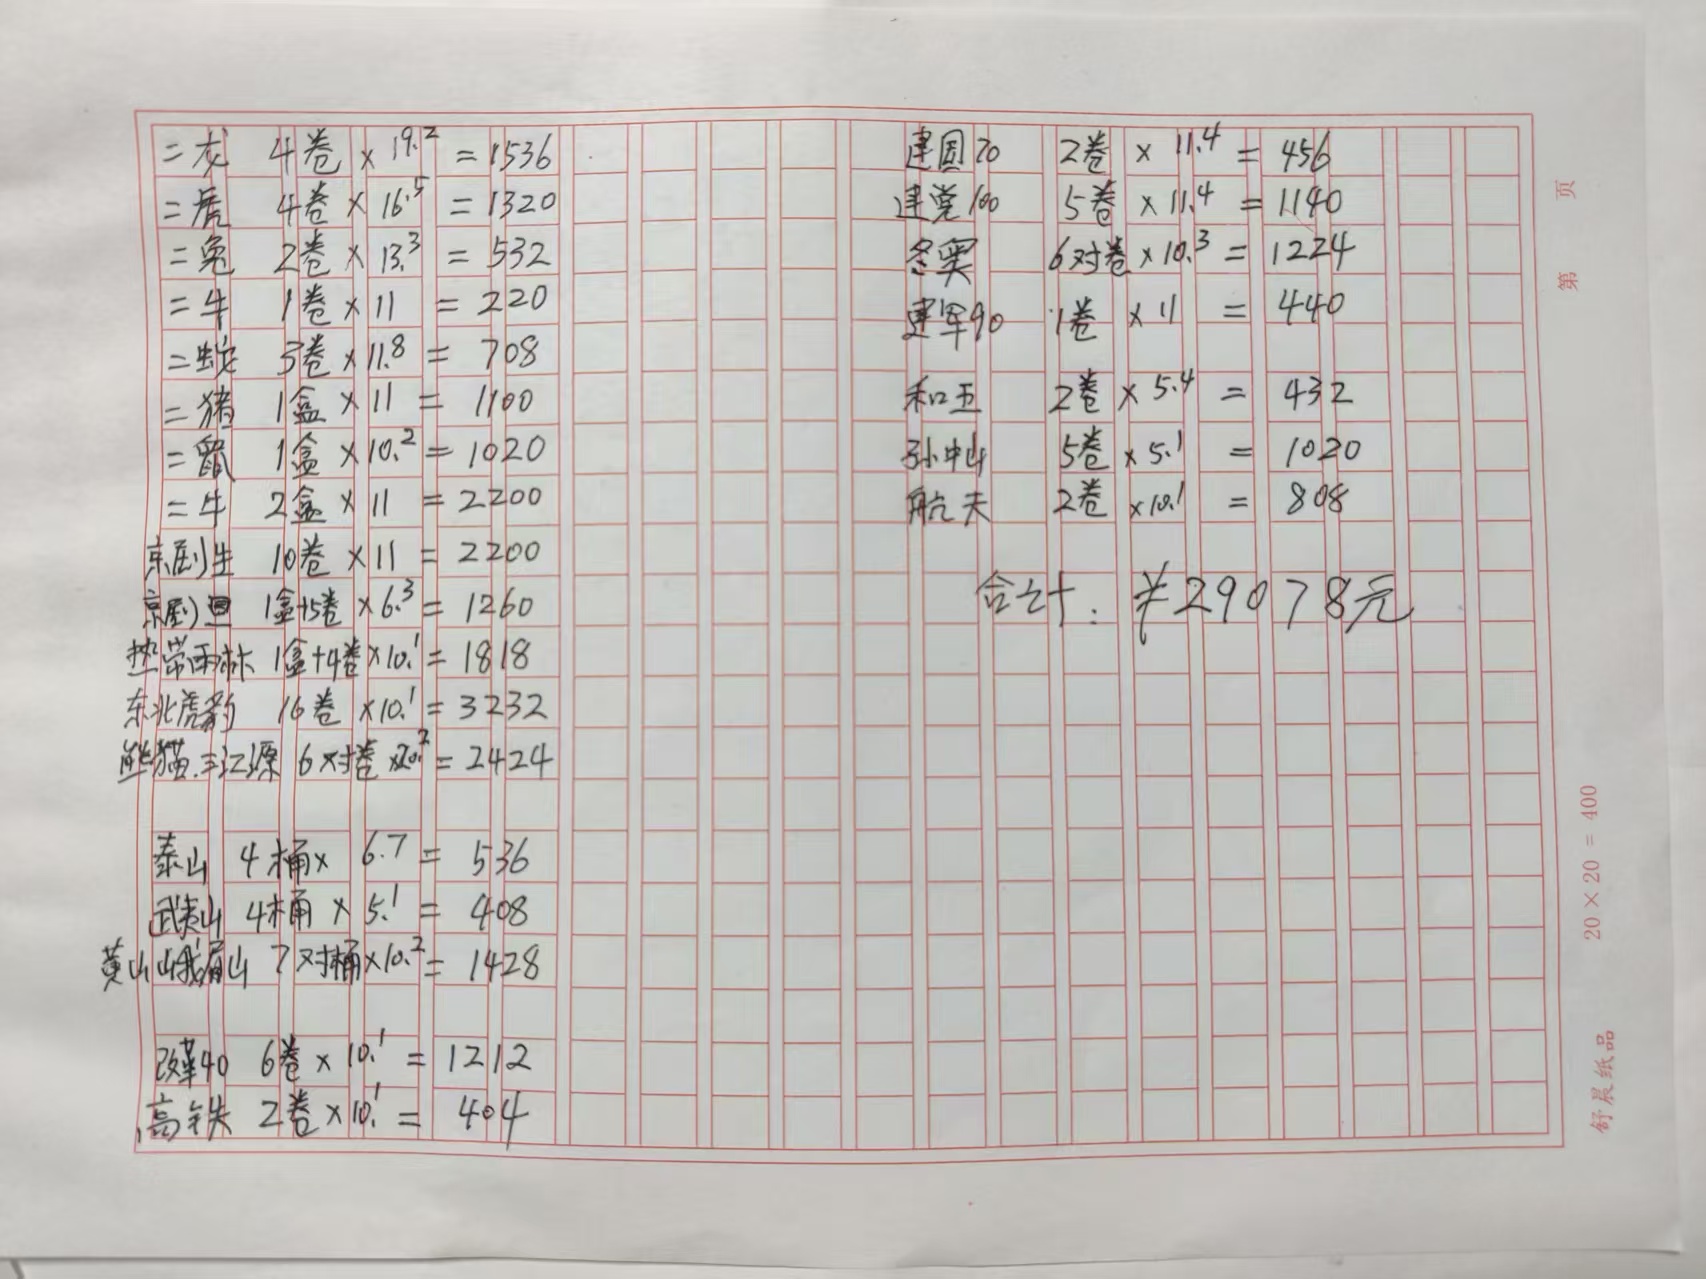 二龙 4卷 × 19.2 = 1536
二虎 4卷 × 16.5 = 1320
二兔 2卷 × 13.3 = 532
二牛 1卷 × 11 = 220
二蛇 3卷 × 11.8 = 708
二猪 1盒 × 11 = 1100
二鼠 1盒 × 10.2 = 1020
二牛 2盒 × 11 = 2200
京剧生 10卷 × 11 = 2200
京剧旦 1盒+5卷 × 6.3 = 1260
热带雨林 1盒+4卷 × 10.1 = 1818
东北虎豹 16卷 × 10.1 = 3232
熊猫.三江源 6对卷 × 20.2 = 2424
泰山 4桶 × 6.7 = 536
武夷山 4桶 × 5.1 = 408
黄山峨眉山 7对桶 × 10.2 = 1428
改革40 6卷 × 10.1 = 1212
高铁 2卷 × 10.1 = 404
建国70 2卷 × 11.4 = 456
建党100 5卷 × 11.4 = 1140
冬奥 6对卷 × 10.3 = 1224
建军90 1卷 × 11 = 440
和五 2卷 × 5.4 = 432
孙中山 5卷 × 5.1 = 1020
航天 2卷 × 10.1 = 808
合计: ¥29078元
第 页
20 × 20 = 400
舒晨纸品